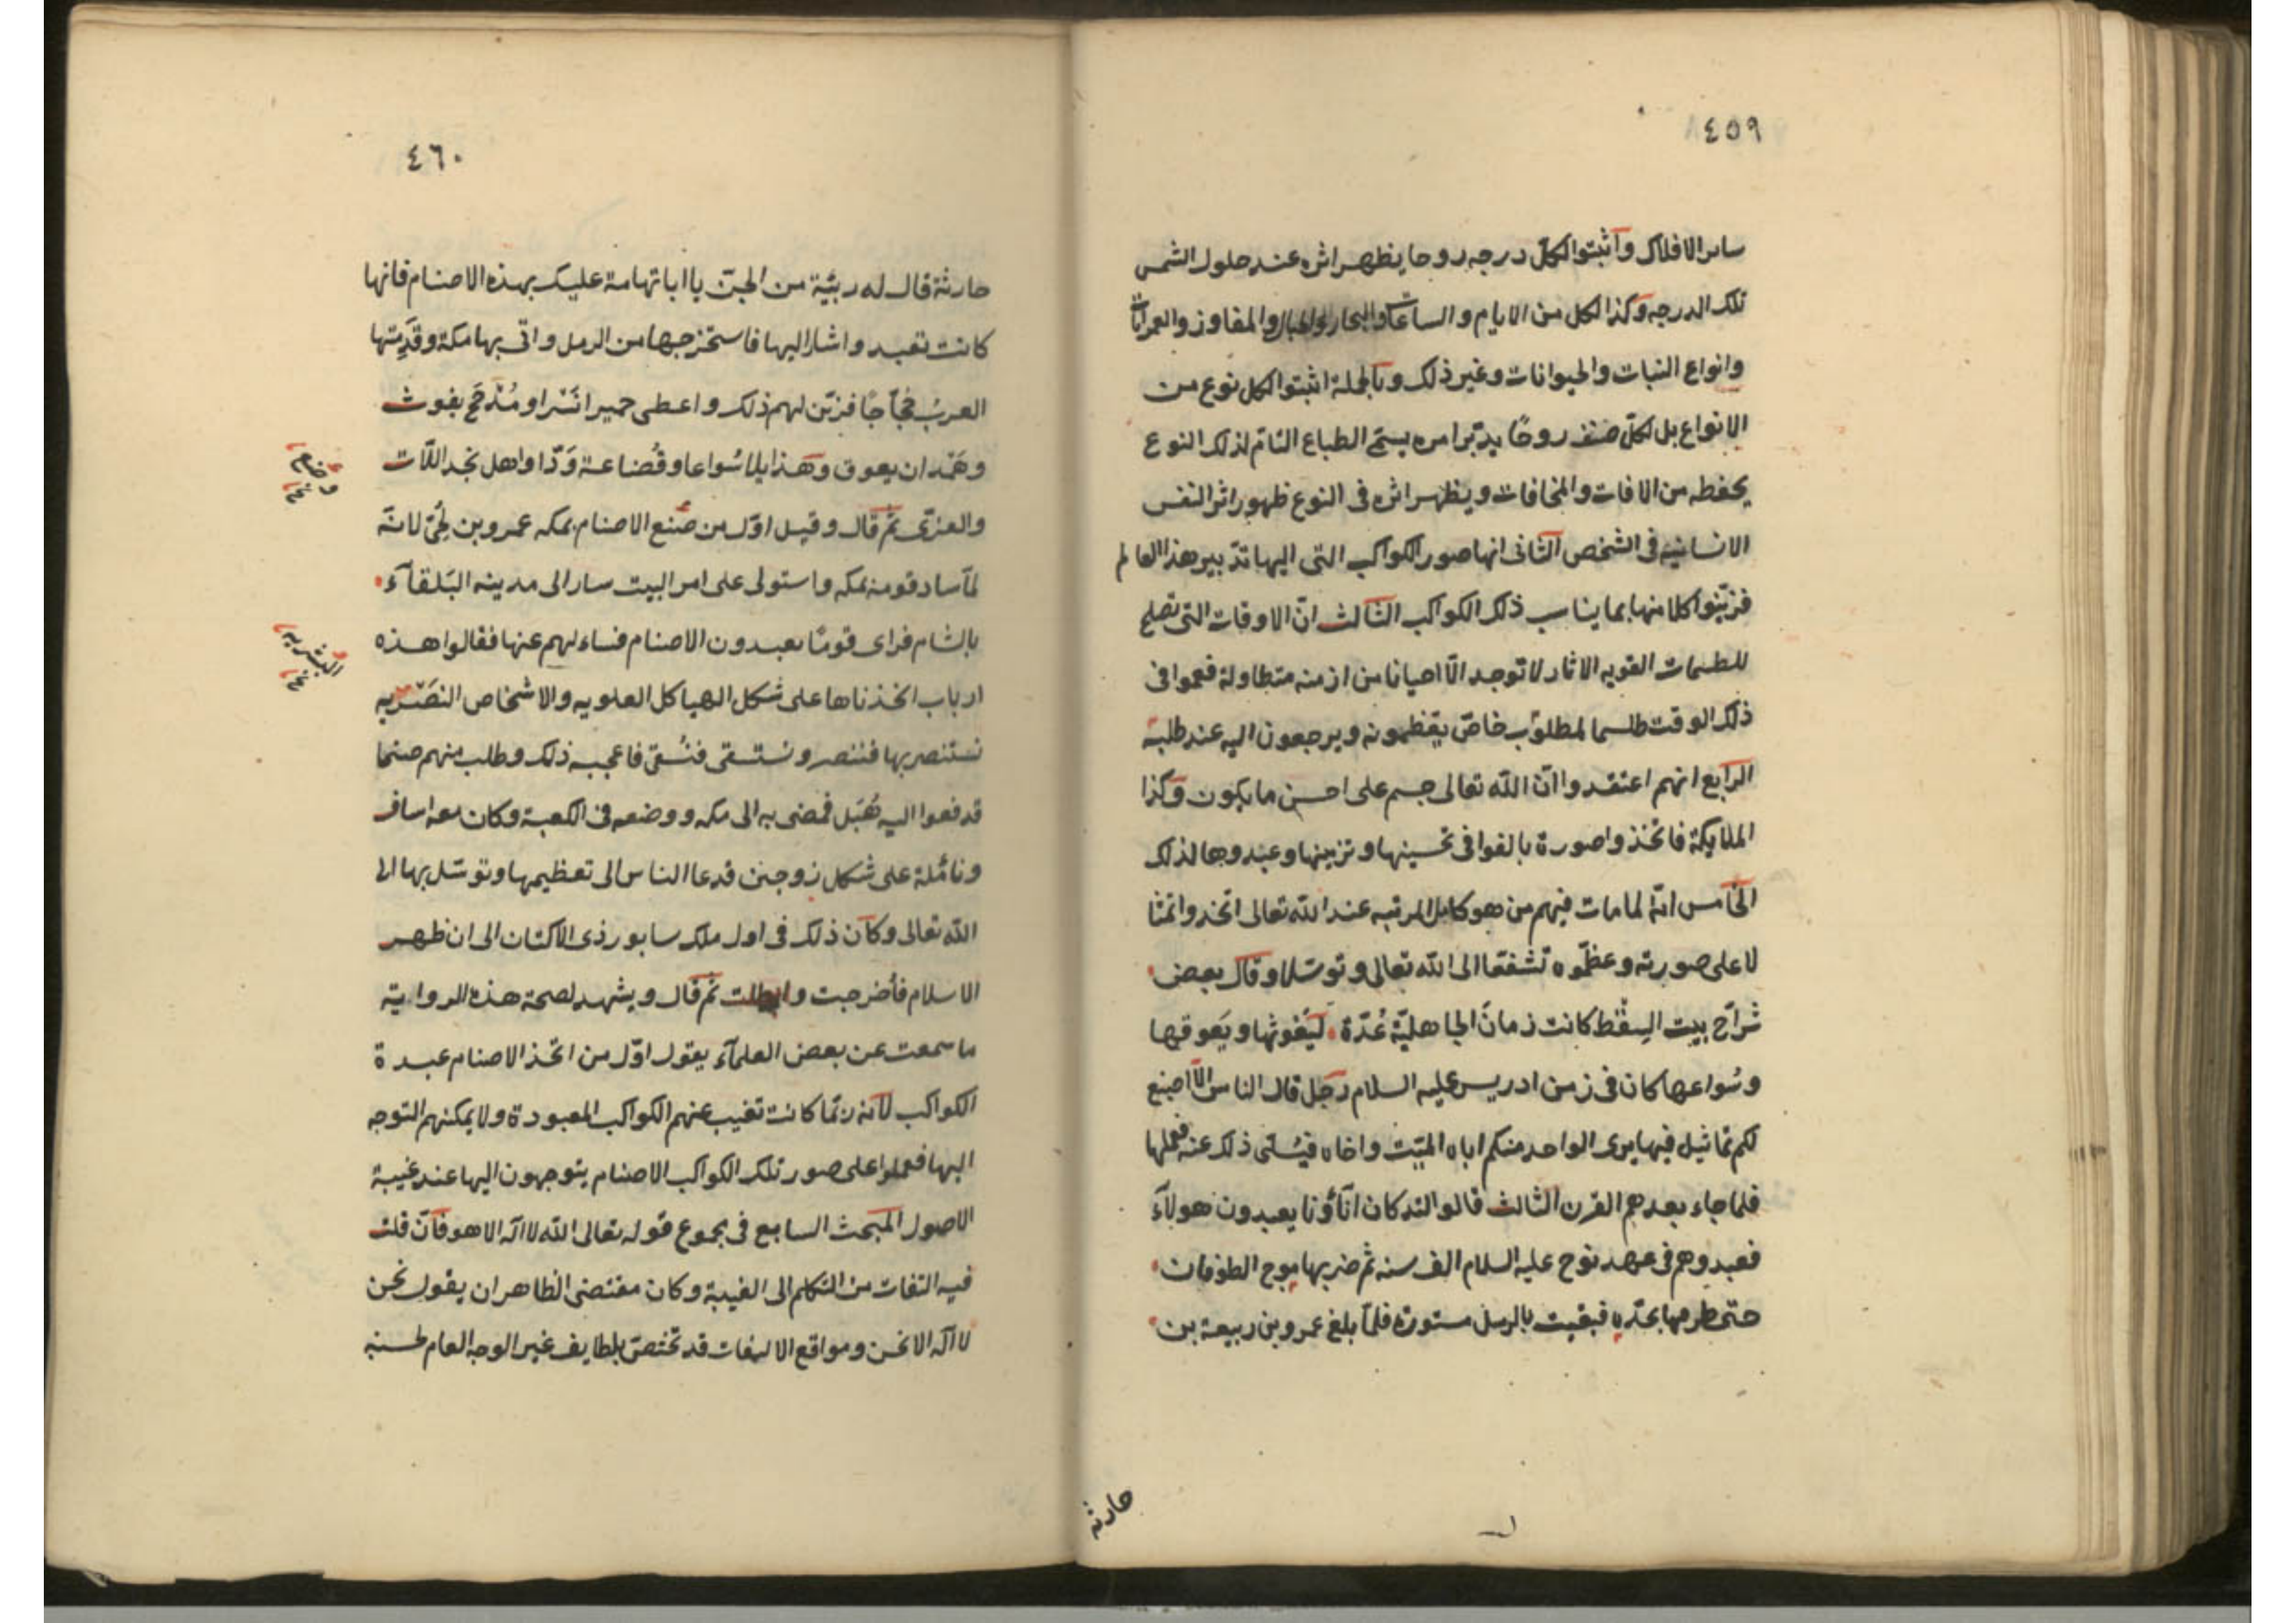 ٤٥٩
ساىر الافلاك واثبتوا لكل درجه روحا يظهر اثره عند حلول الشمس
تلك الدرجه وكذا لكل من الايام والساعات والبحار والجبال والمفاوز والعمرانات
وانواع النبات والحيوانات وغير ذلك وبالجملة اثبتوا لكل نوع من
الانواع بل لكلّ صنف روحًا يدبّر امره يسمّى الطباع التامّ لذلك النوع
يحفظه من الافات والمخافات ويظهر اثره فى النوع ظهور اثر النفس
الانسانيه فى الشخص الثانى انها صور الكواكب التى اليها تدبير هذا العالم
فزيّنوا كلا منها بما يناسب ذلك الكواكب الثالث انّ الاوقات التى تصلح
للطلسمات القويه الاثار لا توجد الّا احيانا من ازمنه متطاولة فعملوا فى
ذلك الوقت طلسما لمطلوب خاصّ يعظمونه ويرجعون اليه عند طلبه
الرابع انهم اعتقدوا انّ الله تعالى جسم على احسن ما يكون وكذا
الملايكة فاتّخذوا صورة بالغوا فى تحسينها وتزيينها وعبدوها لذلك
الخامس انّه لما مات فيهم من هو كامل المرتبه عند الله تعالى اتخذوا تمثا
لا على صورته وعظّموه تشفعا الى الله تعالى وتوسّلا وقال بعض
شرّاح بيت السِقْط كانت زمانَ الجاهليّة عُدّة ليَغوثها ويَعوقها
وسُواعها كان فى زمن ادريس عليه السلام رجل قال الناس الّا اصنع
لكم تماثيل فيها يرى الواحد منكم اباه الميّت واخاه فيُسلّى ذلك عنه فعملها
فلما جاء بعدهم القرن الثالث قالوا لقد كان ابآؤنا يعبدون هولآء
فعبدوهم فى عهد نوح عليه السلام الف سنه ثم ضربها موج الطوفان
حتى طرحها بجدّه فبقيت بالرمل مستورة فلمّا بلغ عمرو بن ربيعة بن
حارثه
٤٦٠
حارثة قال له ربيّة من الجنّ يا ابا تهامة عليك بهذه الاصنام فانها
كانت تعبد واشار اليها فاستخرجها من الرمل واتى بها مكة وقَدِمتها
العربُ حُجّاجًا فزيّن لهم ذلك واعطى حميرا نَسْرا ومُذحَج يغوث
وهَمْدان يعوق وهذايلا سُواعا وقُضاعة وَدّا واهل نجد اللّات
والعزّى ثم قال وقيل اوّل من صُنع الاصنام بمكه عمرو بن لُحَىّ لانّه
وضع
نخ
لمّا ساد قومه بمكه واستولى على امر البيت سار الى مدينه البَلقآء
بالشام فراى قومًا يعبدون الاصنام فساءلهم عنها فقالوا هذه
البشريه
نخ
ارباب اتخذناها على شكل الهياكل العلويه والاشخاص النصَريه
نستنصر بها فننصر ونستسقى فنُسقى فاعجبه ذلك وطلب منهم صنما
فدفعوا اليه هُبَل فمضى به الى مكه ووضعه فى الكعبة وكان معه اساف
ونائلة على شكل زوجين فدعا الناس الى تعظيمها وتوسّل بها الى
الله تعالى وكان ذلك فى اول ملك سابور ذى الاكتاف الى ان ظهر
الاسلام فأُخرجت وابطلت ثم قال ويشهد لصحة هذه الرواية
ما سمعت عن بعض العلمآء يقول اوّل من اتّخذ الاصنام عبدة
الكواكب لانّه ربّما كانت تغيب عنهم الكواكب المعبودة ولا يمكنهم التوجه
اليها فعملوا على صور تلك الكواكب الاصنام يتوجهون اليها عند غيبة
الاصول المبحث السابع فى مجموع قوله تعالى الله لا اله الا هو فان قلت
فيه التفات من التكلم الى الغيبة وكان مقتضى الظاهر ان يقول نحن
لا اله الا نحن ومواقع الالتفات قد تختصّ بلطايف غير الوجه العام لحسنه